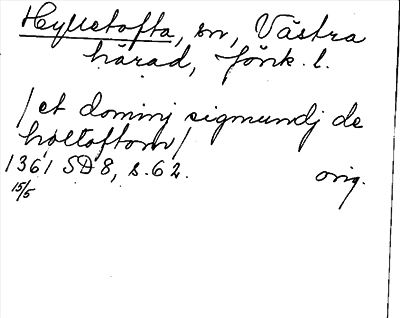 Hylletofta, sn, Västra
härad, Jönk. l.
/et dominj sigmundj de
holtoftom/
1361 SD 8, s. 62. orig.
15/5